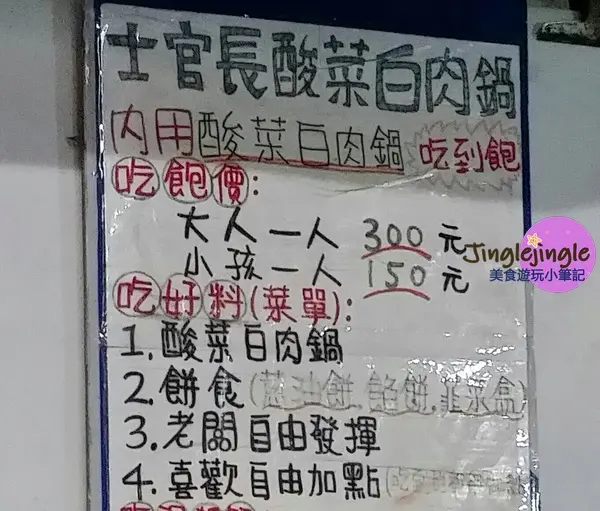 士官長酸菜白肉鍋
內用酸菜白肉鍋 吃到飽
吃飽價:
大人一人 300元
小孩一人 150元
Jinglejingle
美食遊玩小筆記
吃好料(菜單):
1.酸菜白肉鍋
2.餅食(蔥油餅.餡餅.韭菜盒)
3.老闆自由發揮
4.喜歡自由加點